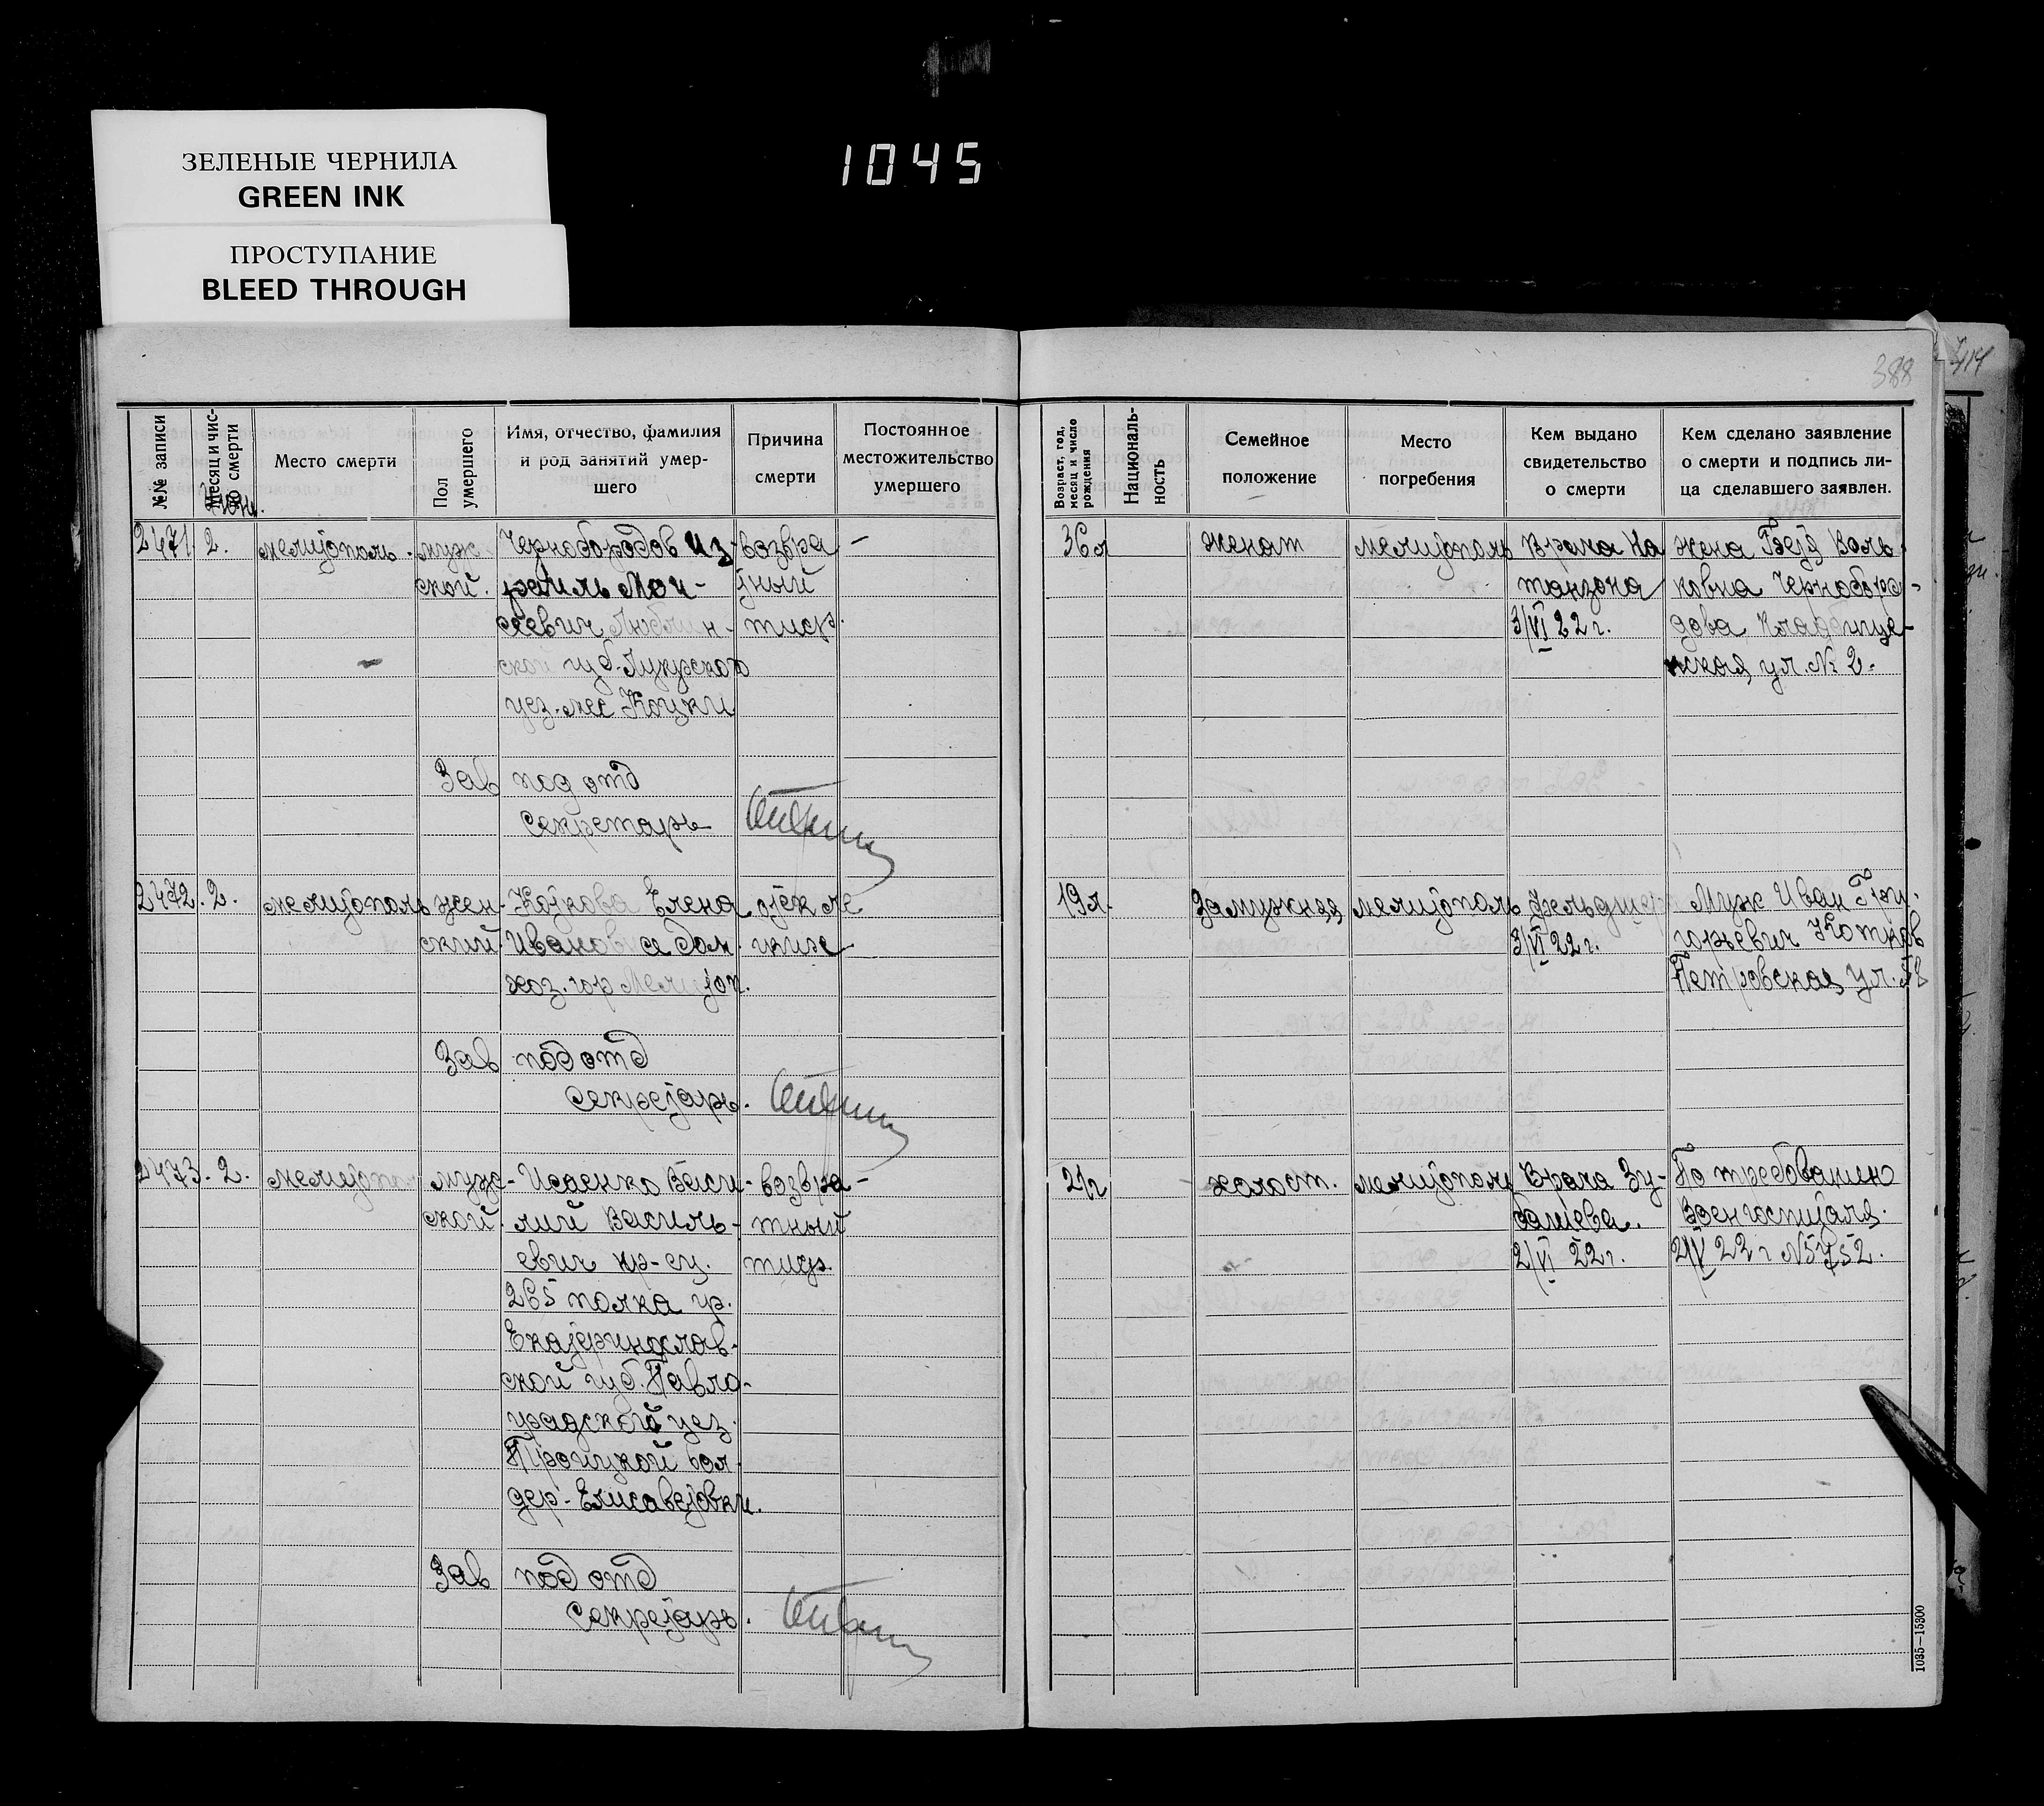 1045
ЗЕЛЕНЫЕ ЧЕРНИЛА
GREEN INK
ПРОСТУПАНИЕ
BLEED THROUGH
388
414
№№ записи
Месяц и чис-
ло смерти
Место смерти
Пол
умершего
Имя, отчество, фамилия
и род занятий умер-
шего
Причина
смерти
Постоянное
местожительство
умершего
Возраст, год,
месяц и число
рождения
Националь-
ность
Семейное
положение
Место
погребения
Кем выдано
свидетельство
о смерти
Кем сделано заявление
о смерти и подпись ли-
ца сделавшего заявлен.
2471
2.
мелитополь.
муж-
ской.
Чернобородов Из-
раиль Мои-
сеевич Люблин-
ской губ. Лукувского
уез. мес Коцки
возвра
тный
тиф.
—
36 л
женат
мелитополь
Врача На
танзона
3/VI 22 г.
жена Бейд Воль-
ковна Чернобора-
дова Кладбище-
нская ул. № 2.
Зав под отд
Секретарь
2472.
2.
мелитополь
жен-
ский.
Коткова Елена
Ивановна дом.
хоз. гор Мелитоп.
отек ле
гких
19 л.
замужняя
мелитополь
Фельдшер
3/VI 22 г.
Муж Иван Гри-
горьевич Котков
Петровская ул. 58
Зав под отд
Секретарь.
2473.
2.
мелитопол
муж-
ской.
Исаенко Васи-
лий Василь-
евич кр-ец.
265 полка гр.
Екатеринослав-
ской губ. Павло-
градской уез.
Троицкой вол
дер. Елисаветовки.
возвра-
тный
тиф.
21 г
холост.
мелитополь
Врача Зу-
балиева.
2/VI 22 г.
По требованию
Военгоспиталя.
2/V 22 г № 5752.
Зав под отд
Секретарь.
1035—15300